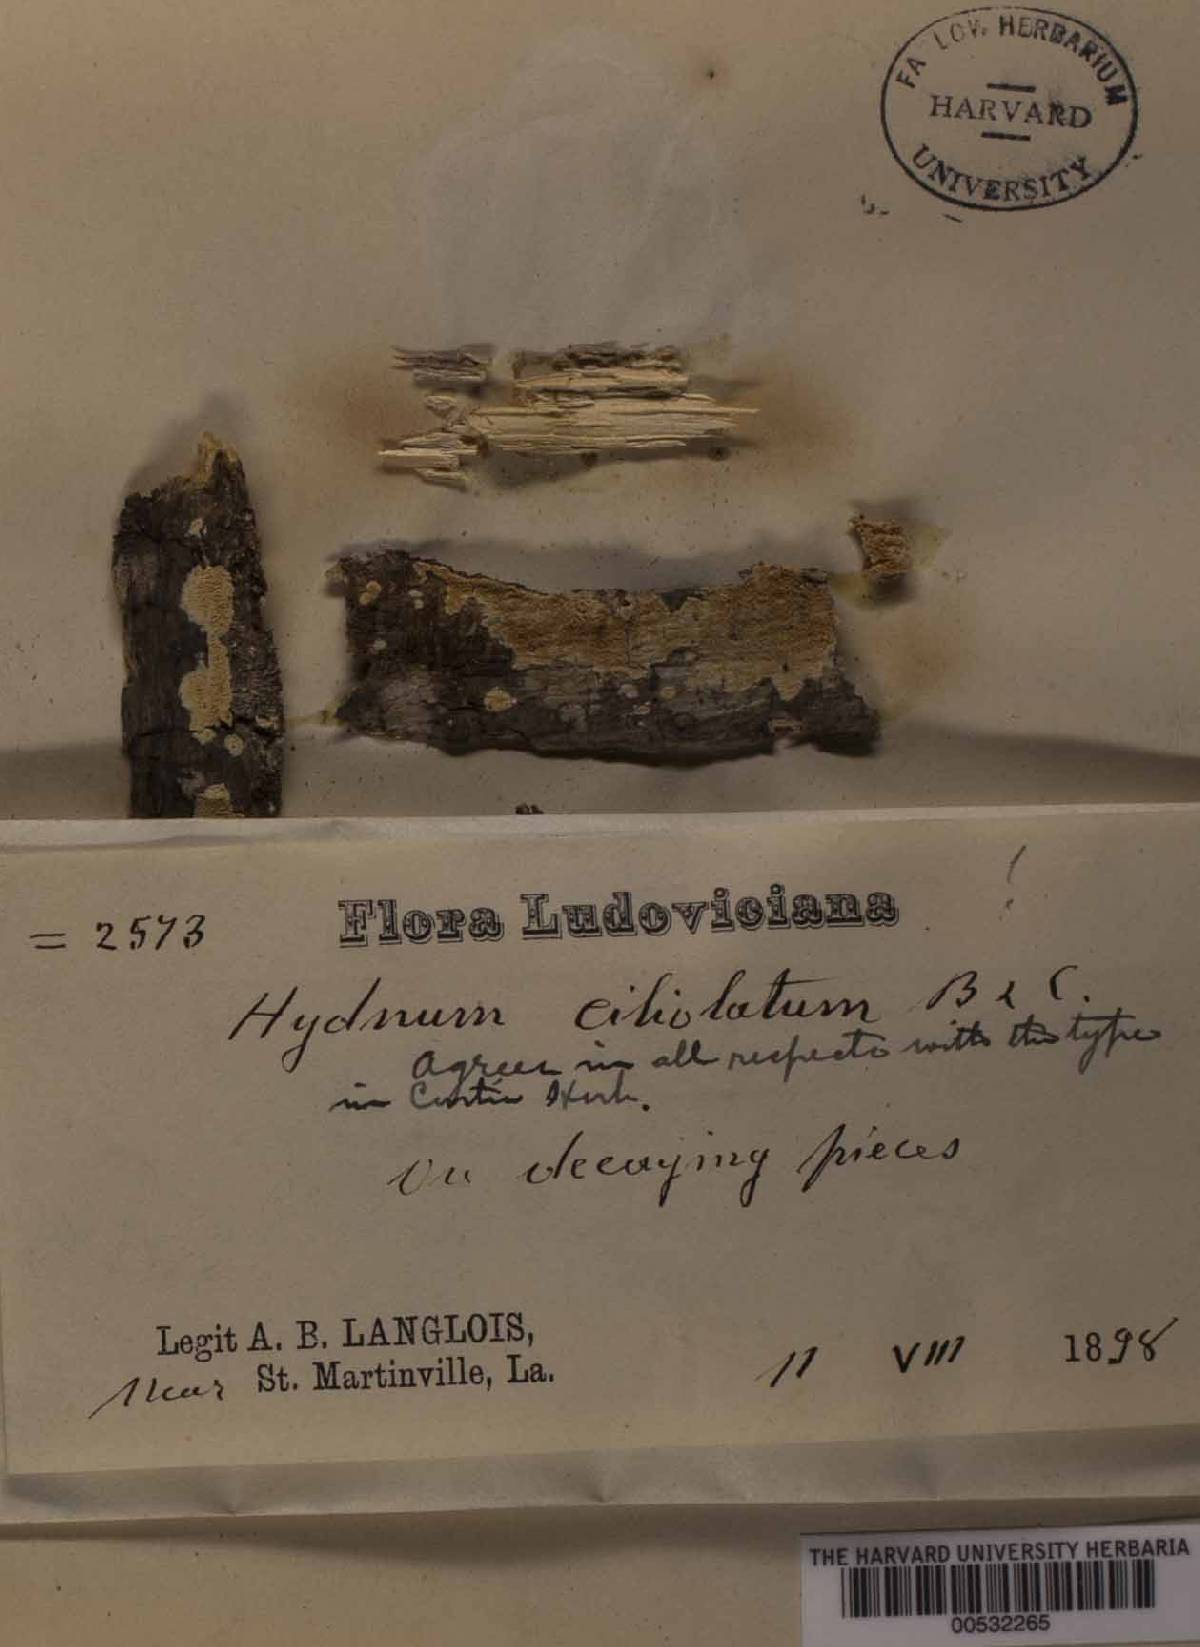 FARLOW HERBARIUM
HARVARD
UNIVERSITY
= 2573
Flora Ludoviciana
Hydnum ciliolatum B & C.
agrees in all respects with the type
in Curtis Herb.
On decaying pieces
Legit A. B. LANGLOIS,
Near St. Martinville, La.
11 VIII 1898
THE HARVARD UNIVERSITY HERBARIA
00532265